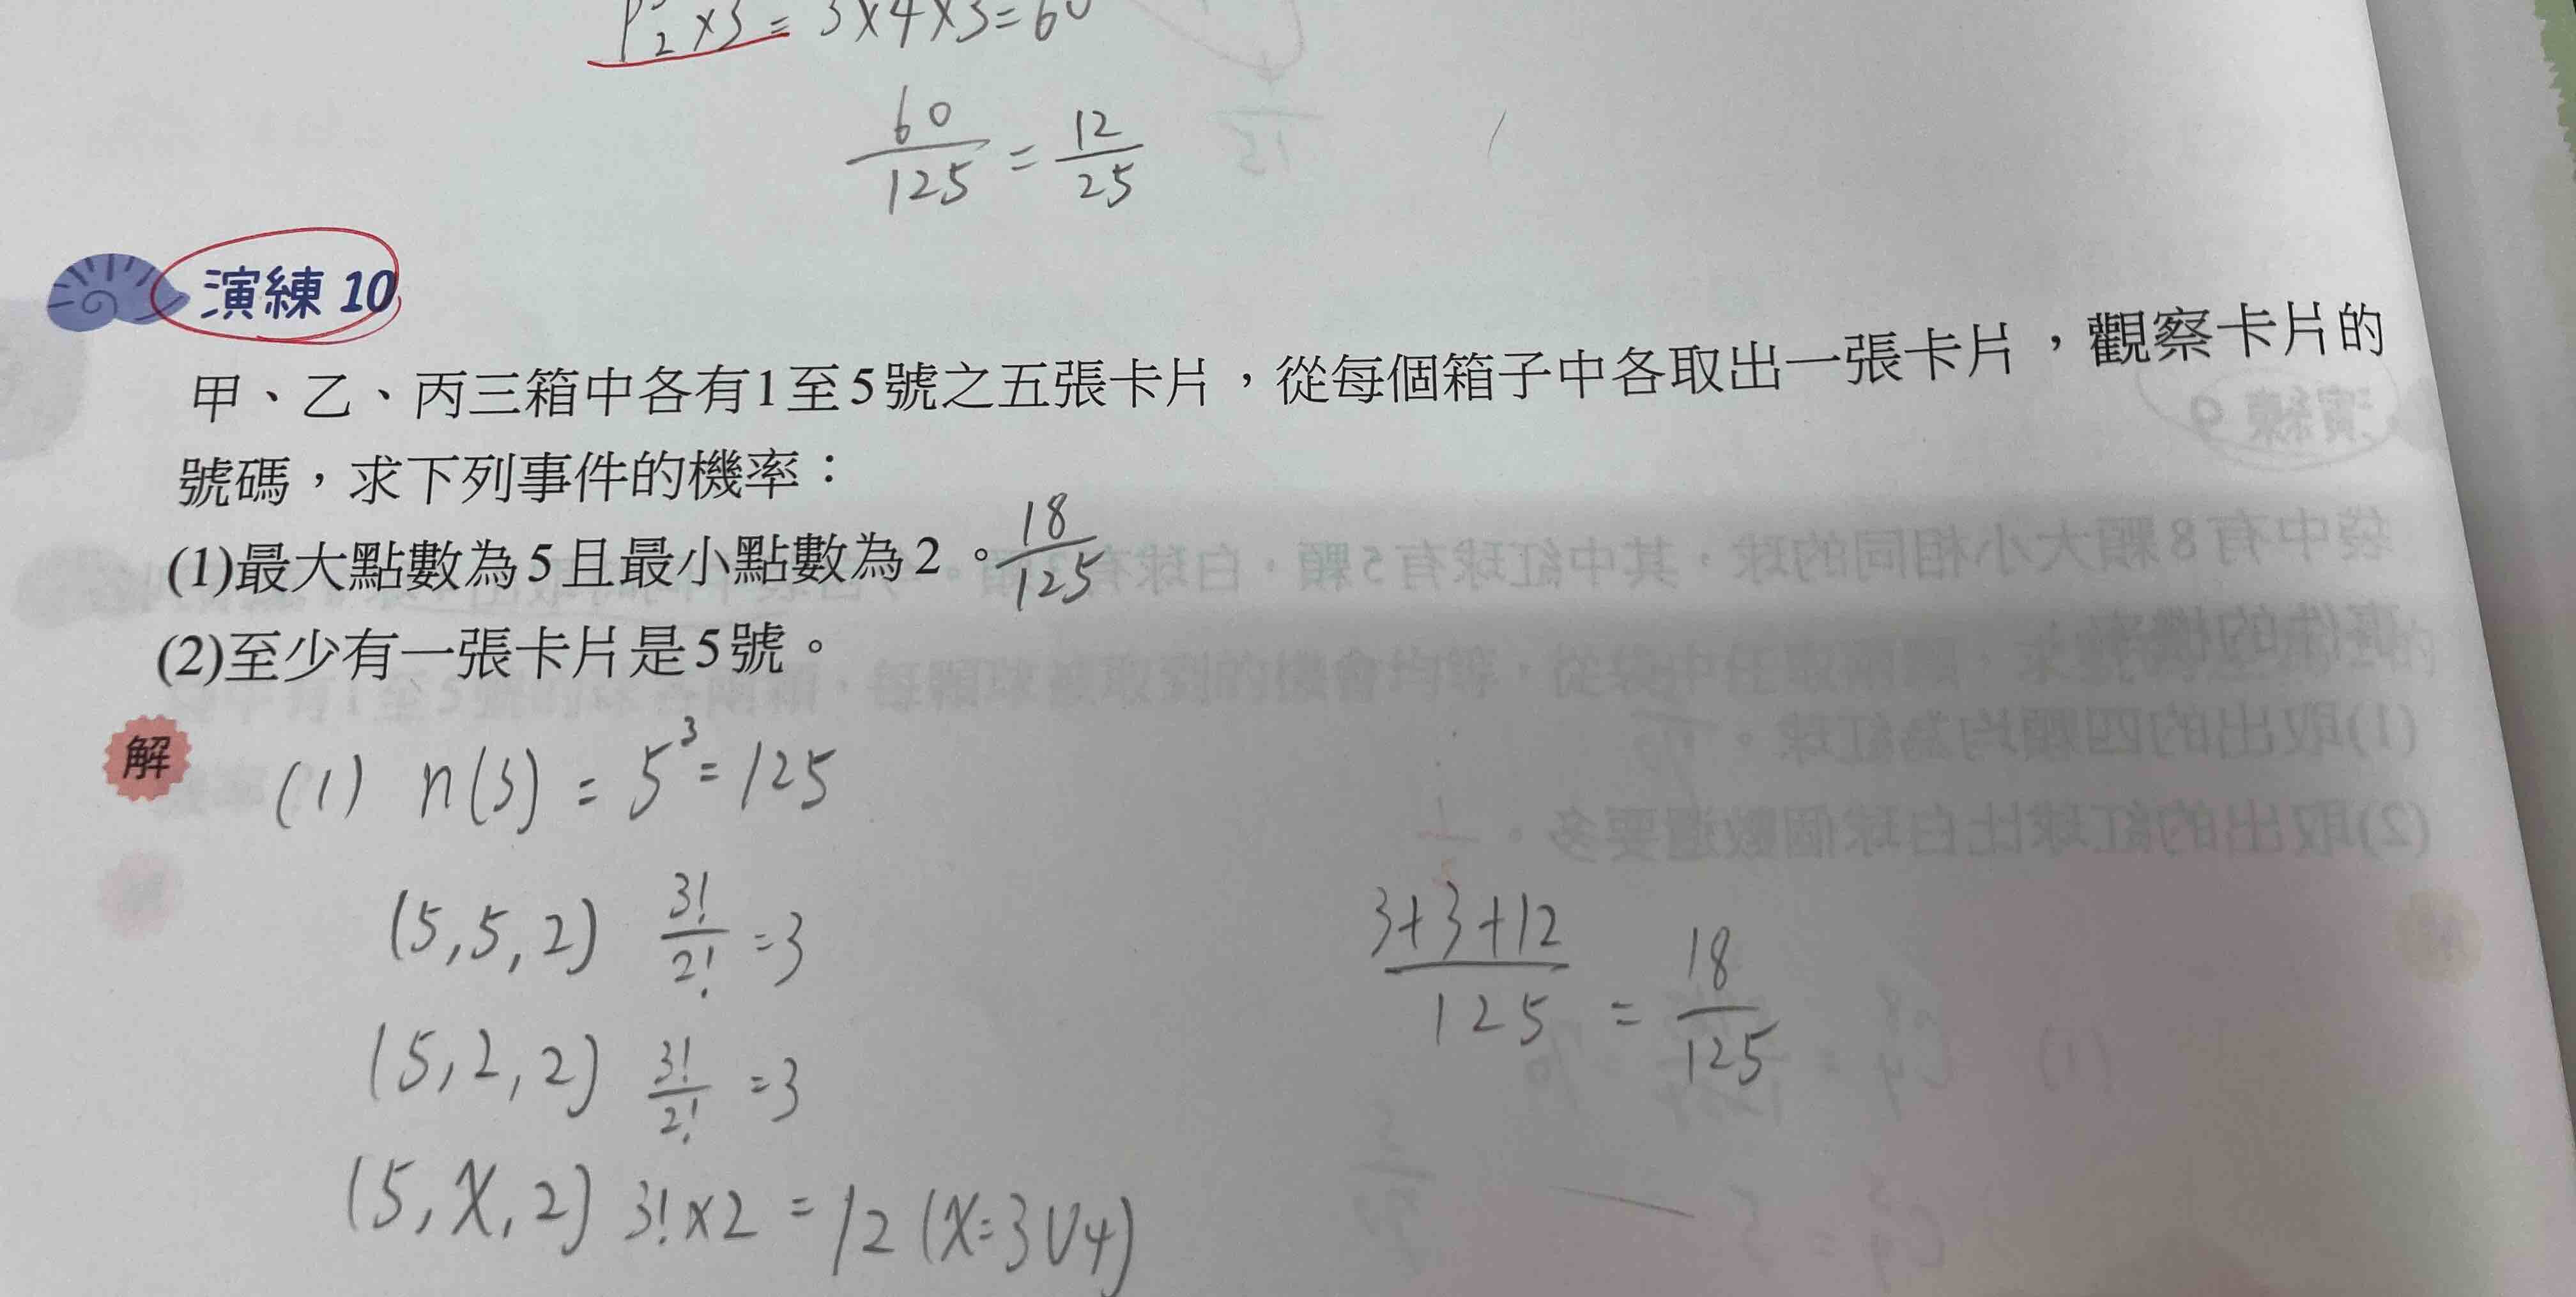 P⁵₂ × 3 = 5×4×3=60
60/125 = 12/25
演練 10
甲、乙、丙三箱中各有1至5號之五張卡片，從每個箱子中各取出一張卡片，觀察卡片的
號碼，求下列事件的機率：
(1)最大點數為5且最小點數為2。18/125
(2)至少有一張卡片是5號。
解
(1) n(S) = 5³ = 125
(5,5,2) 3!/2! =3
(5,2,2) 3!/2! =3
(5,X,2) 3!×2 = 12 (X=3∪4)
3+3+12/125 = 18/125